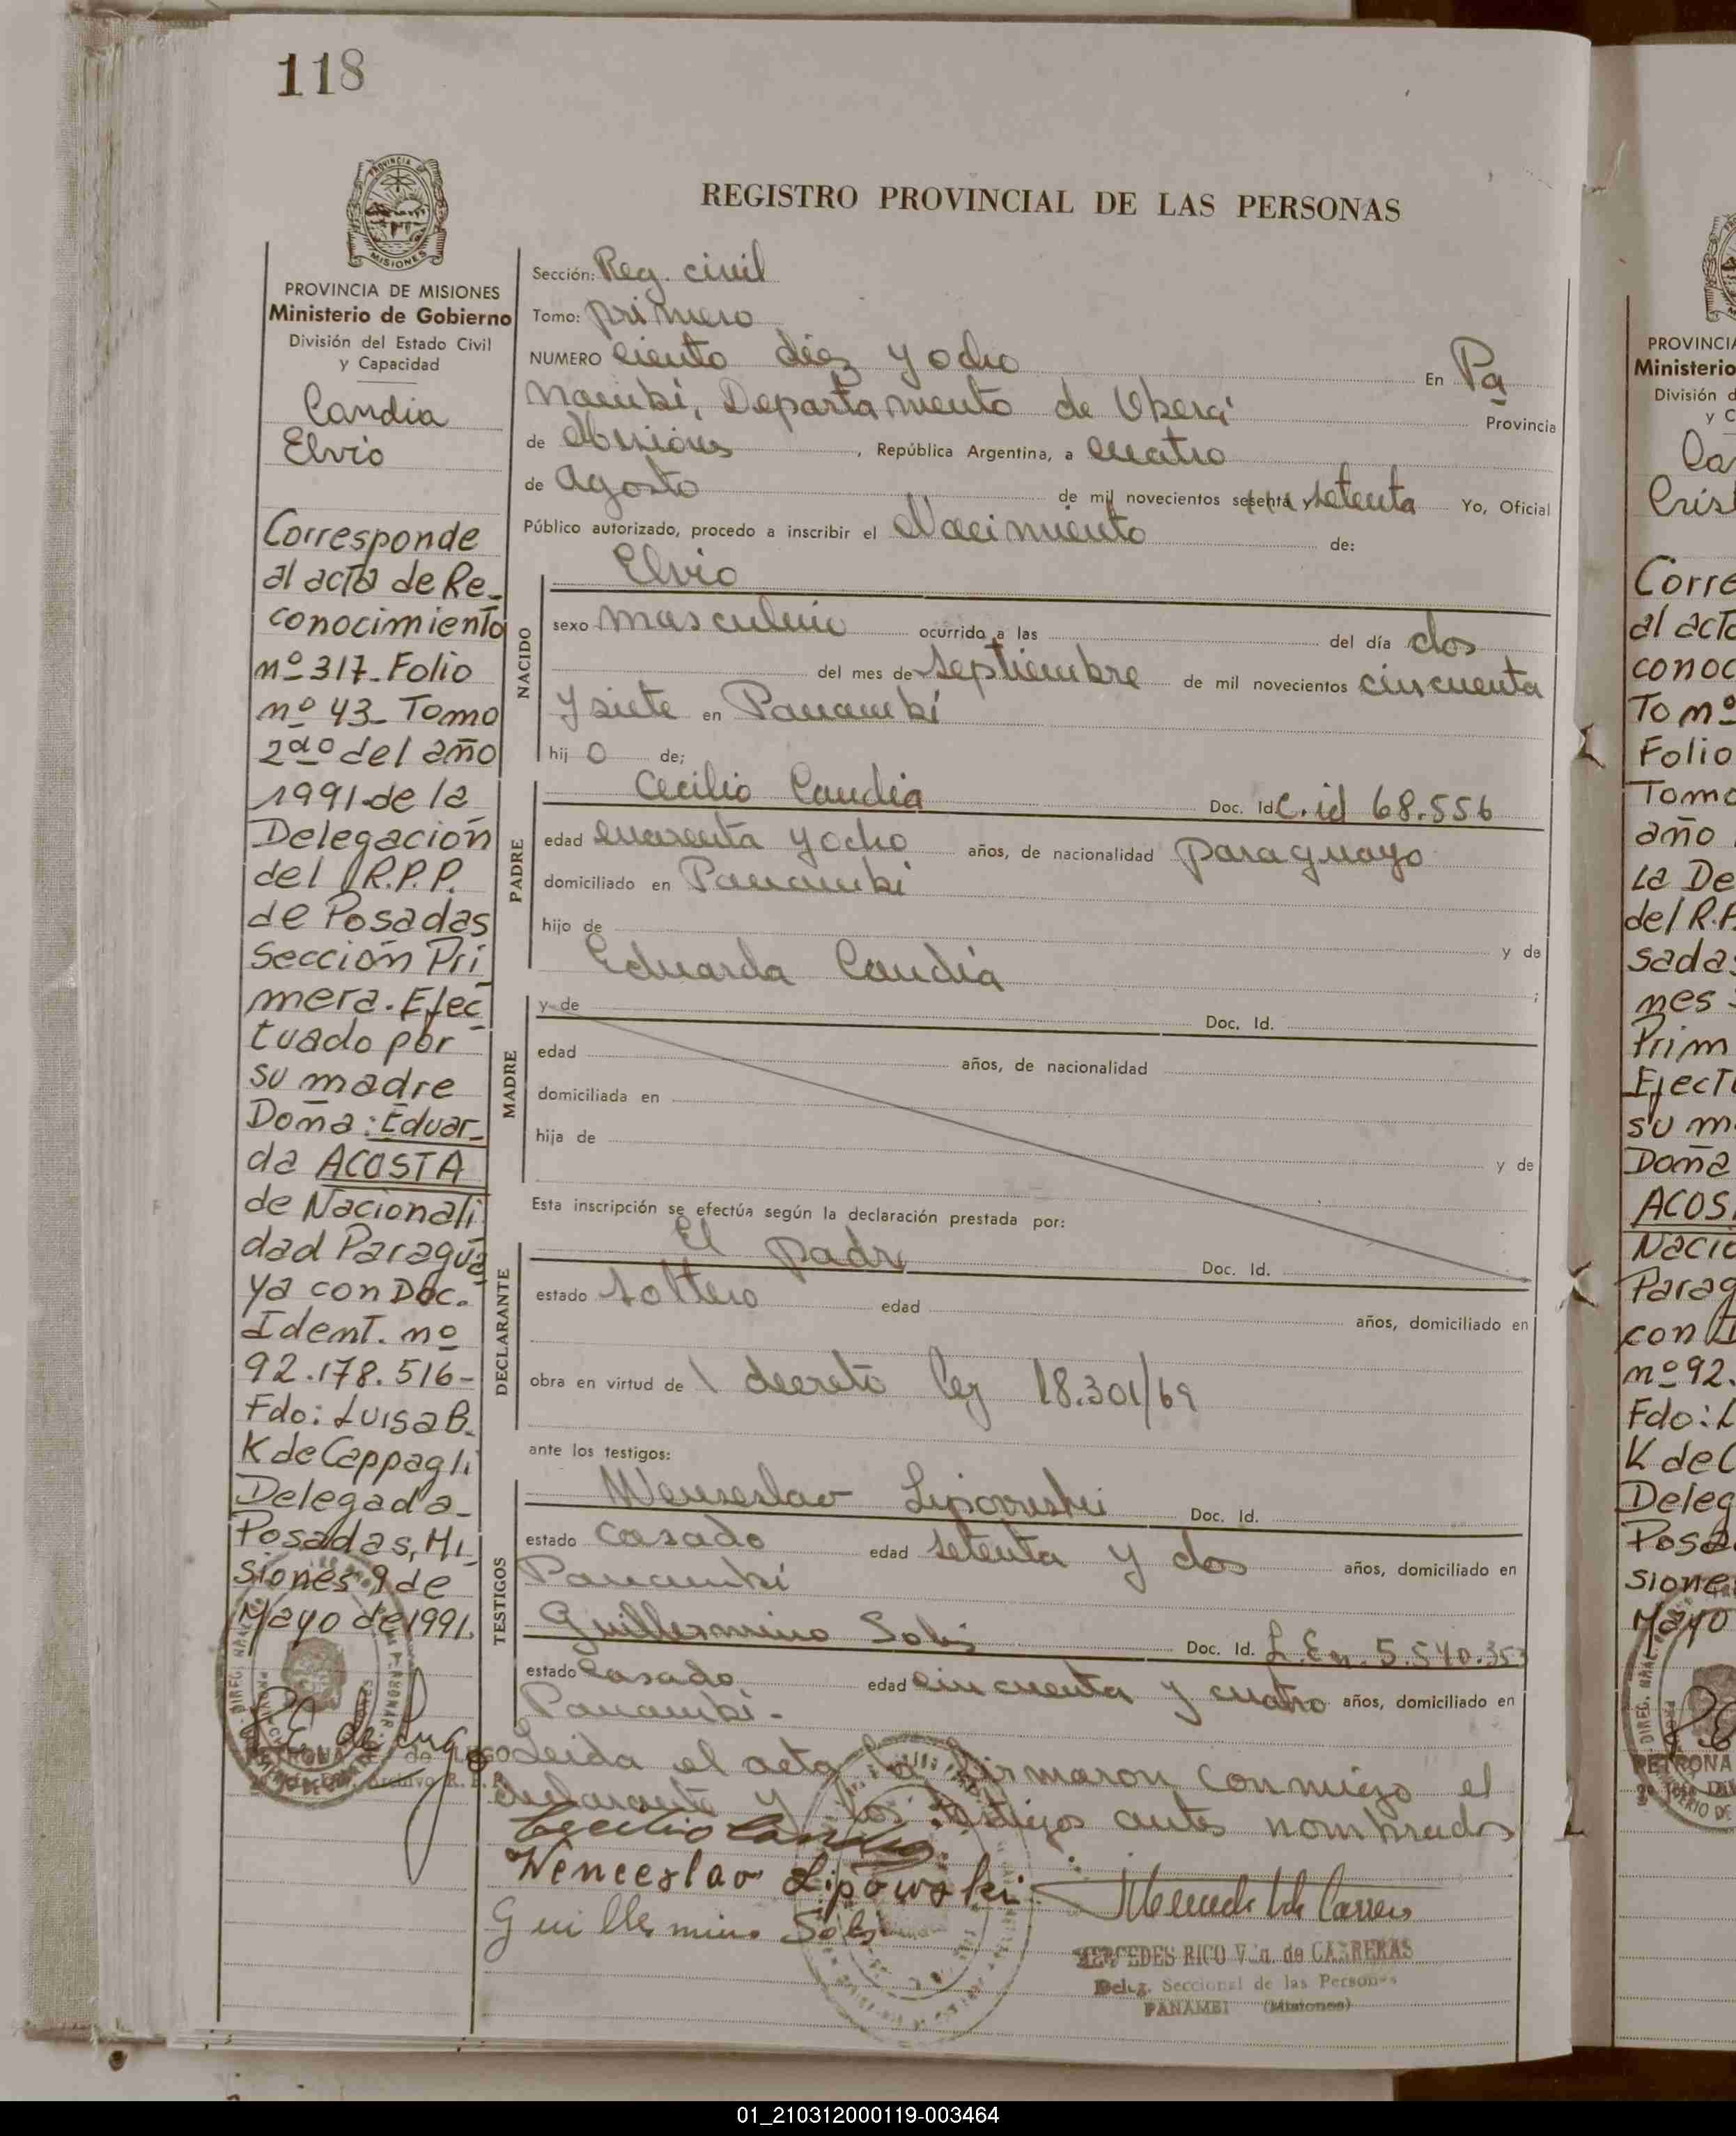 118
PROVINCIA DE
MISIONES
PROVINCIA DE MISIONES
Ministerio de Gobierno
División del Estado Civil
y Capacidad
Candia
Elvio
Corresponde
al acta de Re-
conocimiento
nº 317- Folio
nº 43- Tomo
2do del año
1991- de la
Delegación
del R.P.P.
de Posadas
Sección Pri
mera. Efec
tuado por
su madre
Doña: Eduar-
da ACOSTA
de Nacionali
dad Paragua
ya con Doc.
Ident. nº
92.178.516-
Fdo: Luisa B.
K de Cappagli
Delegada-
Posadas, Mi
siones 9 de
Mayo de 1991.
PETRONA de LUGO
Archivo R. P. P.
REGISTRO PROVINCIAL DE LAS PERSONAS
Sección: Reg. civil
Tomo: primero
NUMERO ciento diez y ocho En Pa
nambí, Departamento de Oberá Provincia
de Misiones, República Argentina, a cuatro
de Agosto de mil novecientos sesenta y setenta Yo, Oficial
Público autorizado, procedo a inscribir el Nacimiento de:
Elvio
NACIDO
sexo masculino ocurrido a las del día dos
del mes de septiembre de mil novecientos cincuenta
y siete en Panambí
hij o de;
PADRE
Cecilio Candia Doc. Id C. id 68.556
edad cuarenta y ocho años, de nacionalidad paraguayo
domiciliado en Panambí
hijo de y de
Eduarda Candia ;
MADRE
y de Doc. Id.
edad años, de nacionalidad
domiciliada en
hija de y de
Esta inscripción se efectúa según la declaración prestada por:
DECLARANTE
El padre Doc. Id.
estado soltero edad años, domiciliado en
obra en virtud de decreto ley 18.301/69
ante los testigos:
TESTIGOS
Wenseslao Lipowski Doc. Id.
estado casado edad setenta y dos años, domiciliado en
Panambí
Guillermino Solis Doc. Id. L.En. 5.540.353
estado casado edad cincuenta y cuatro años, domiciliado en
Panambí.-
Leida el acta la firmaron conmigo el
declarante y los testigos antes nombrados
Cecilio Candia
Wenceslao Lipowski
Guillermino Solis
MERCEDES RICO Vda. de CARRERAS
Deleg. Seccional de las Personas
PANAMBI (Misiones)
PROVINCIA
Ministerio
División d
y C
Ca
Cris
Corre
al acta
conoc
Tomº
Folio
Tomo
año
La De
del R.P.
sadas
nes
Prim
Efect
su m
Doña
ACOS
Nacio
Parag
con
nº 92.
Fdo: L
K de C
Deleg
Posa
sione
Mayo
PETRONA
01_210312000119-003464